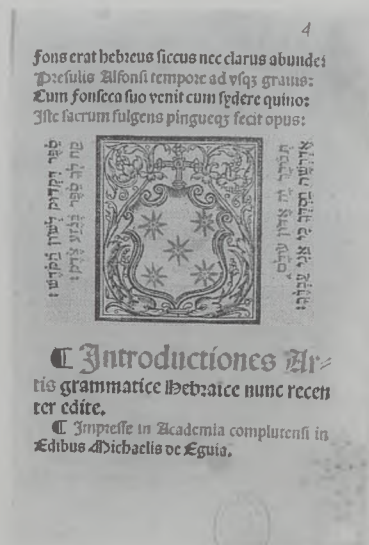 4
Fons erat hebreus siccus nec clarus abunde:
Presulis Alfonsi tempore ad vsqʒ grauis:
Cum fonseca suo venit cum sydere quino:
Iste sacrum fulgens pingueqʒ fecit opus:
ספר דקדוק לשון הקדש:
קח לך ספר
אדון עולם
כי אני עבדך:
¶ Introductiones Ar⸗
tis grammatice Hebraice nunc recen
ter edite.
¶ Impresse in Academia complutensi in
Edibus Michaelis de Eguia.